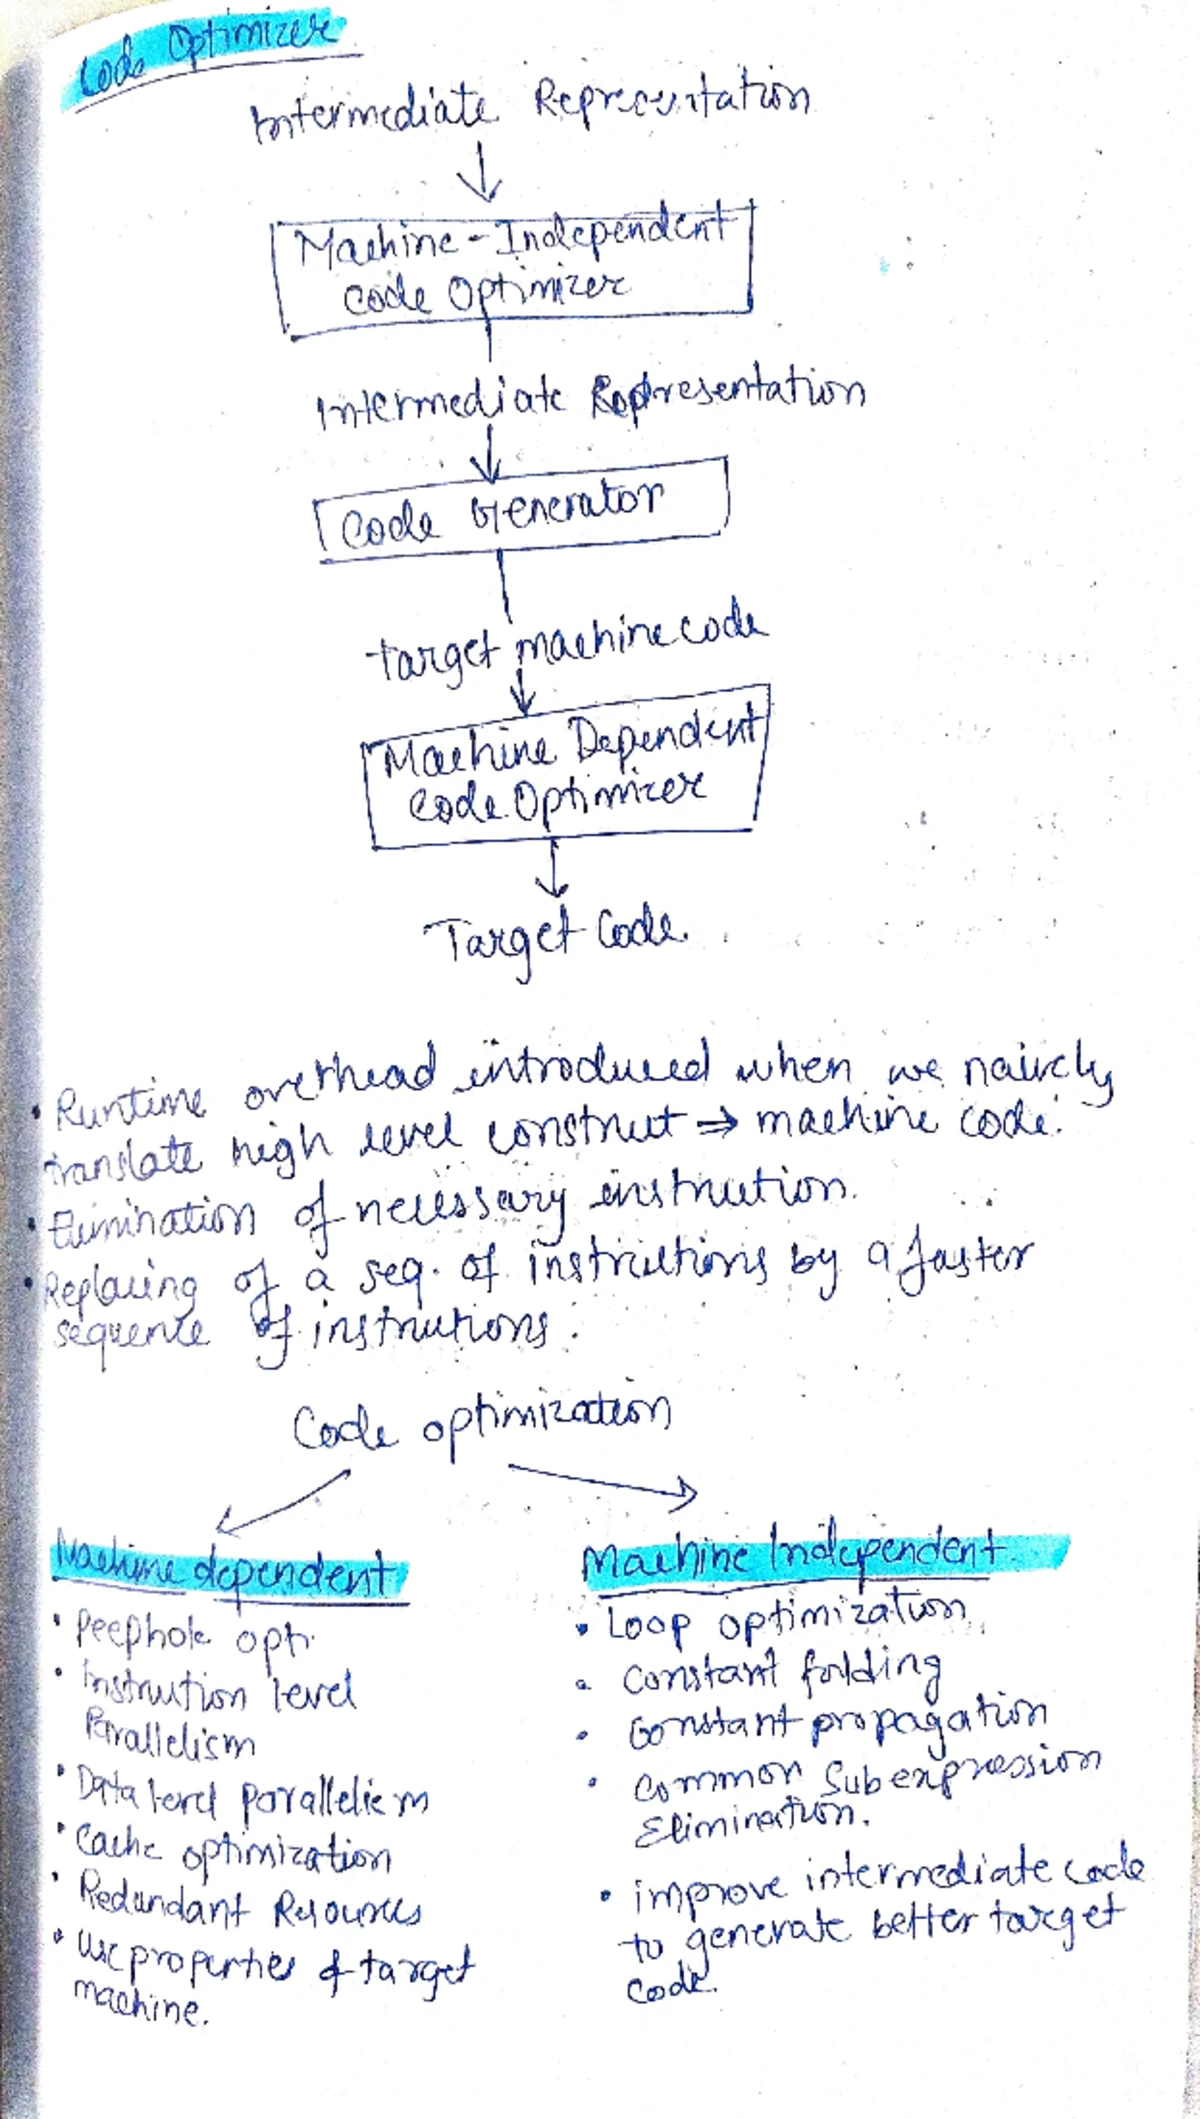 Code Optimizer
Intermediate Representation
Machine-Independent
Code Optimizer
Intermediate Representation
Code Generator
Target machine code
Machine Dependent
Code Optimizer
Target Code.
• Runtime overhead introduced when we naively
translate high level construct ⇒ machine code.
• Elimination of necessary instruction.
• Replacing of a seq. of instructions by a faster
sequence of instructions.
Code optimization
Machine dependent
• Peephole opti.
• Instruction level
Parallelism
• Data level parallelism
• Cache optimization
• Redundant Resources
• Use properties of target
machine.
Machine Independent
• Loop optimization
• Constant folding
• Constant propagation
• Common Subexpression
Elimination.
• improve intermediate code
to generate better target
code.